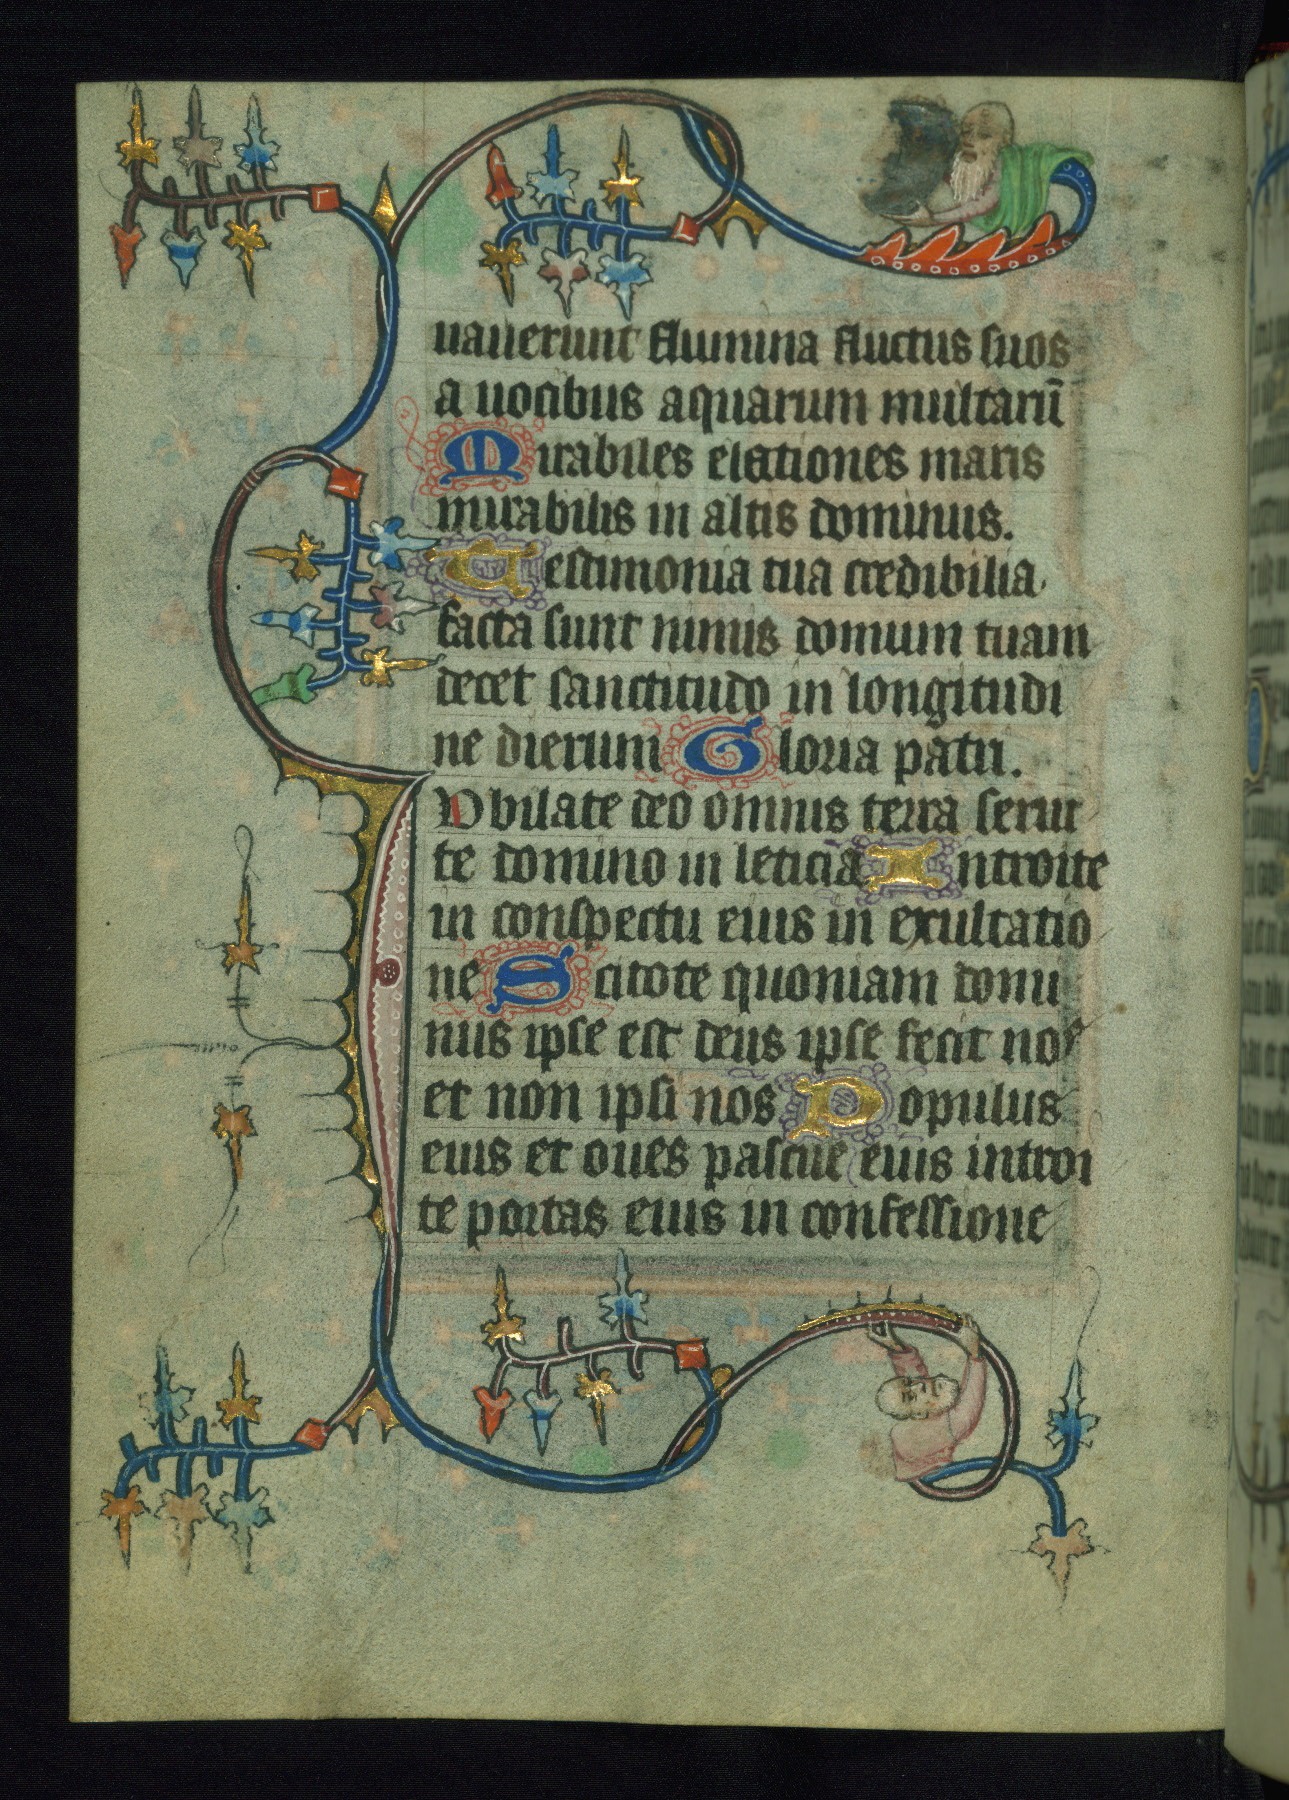 uauerunt flumina fluctus suos
a uocibus aquarum multarū
Mirabiles elationes maris
mirabilis in altis dominus.
Testimonia tua credibilia
facta sunt nimis domum tuam
decet sanctitudo in longitudi
ne dierum Gloria patri.
Iubilate deo omnis terra serui
te domino in leticia Introite
in conspectu eius in exultatio
ne Scitote quoniam domi
nus ipse est deus ipse fecit nos
et non ipsi nos Populus
eius et oues pascue eius introi
te portas eius in confessione